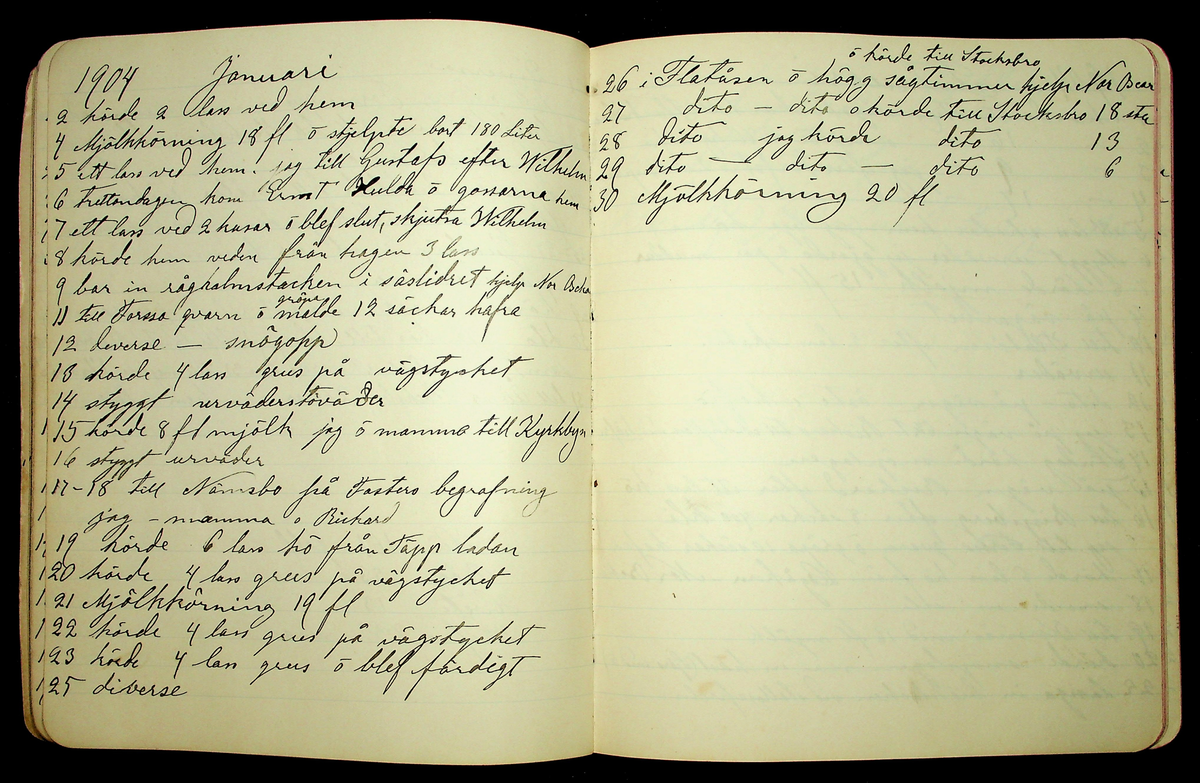 1904 Januari
2 körde 2 lass ved hem
4 Mjölkkörning 18 fl ö stjelpte bort 180 Liter
5 ett lass ved hem. jag till Gustafs efter Wilhelm
6 trettondagen kom Ernst Hulda ö gossarna hem
7 ett lass ved 2 husar ö blef slut, skjutsa Wilhelm
8 körde hem veden från hagen 3 lass
9 bar in råghalmstacken i såslidret hjelp Nor Oscar
gröpe
11 till Forssa qvarn ö malde 12 säckar hafra
12 diverse — snögopp
13 körde 4 lass grus på vägstycket
14 styggt urväderstöväder
15 körde 8 fl mjölk jag ö mamma till Kyrkbyn
16 styggt urväder
17-18 till Nämsbo på Fasters begrafning
jag - mamma o Richard
19 körde 6 lass hö från Täpp ladan
20 körde 4 lass grus på vägstycket
21 Mjölkkörning 19 fl
22 körde 4 lass grus på vägstycket
23 körde 4 lass grus ö blef färdigt
25 diverse
ö körde till Stocksbro
26 i Flatåsen ö högg sågtimmer hjelp Nor Oscar
27 dito — dito o körde till Stocksbro 18 stu
28 dito jag körde dito 13
29 dito — dito — dito 6
30 Mjölkkörning 20 fl